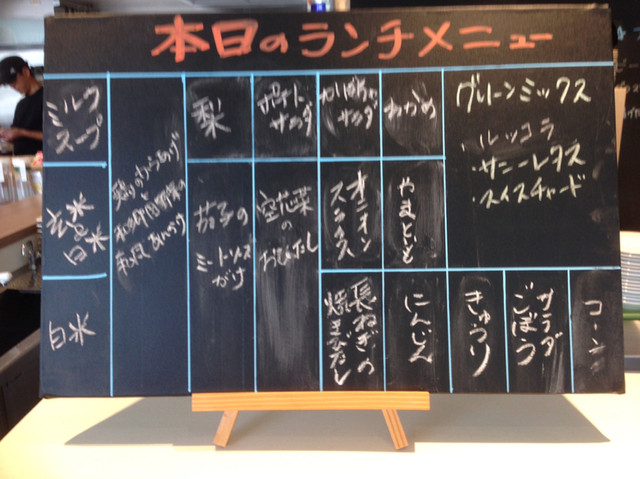 本日のランチメニュー
ミルク
スープ
玄米
or
白米
白米
鶏のからあげ
と
野菜の
梨
茄子の
ミートソース
がけ
ポテト
サラダ
空芯菜
の
おひたし
かぼちゃ
サラダ
オニオン
スライス
長ねぎの
焼きびたし
わかめ
やまといも
にんじん
グリーンミックス
・ルッコラ
・サニーレタス
・スイスチャード
きゅうり
サラダ
ごぼう
コーン